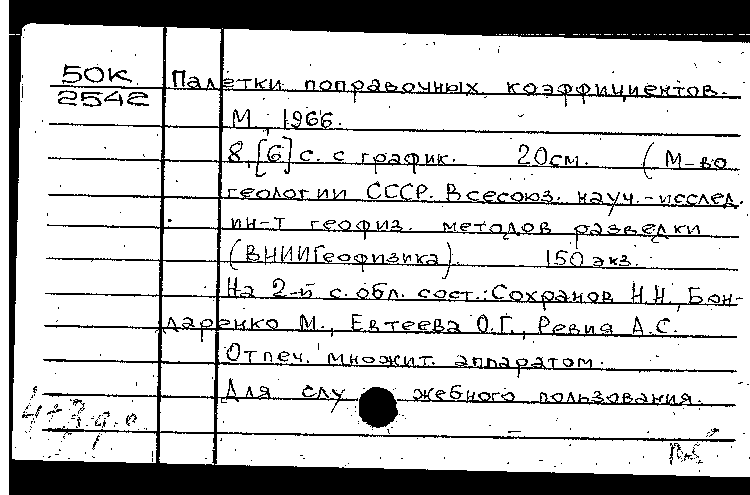 50К
2542
Палетки поправочных коэффициентов.
М., 1966.
8, [6] с. с график. 20см. (М-во
геологии СССР. Всесоюз. науч.-исслед.
ин-т геофиз. методов разведки
(ВНИИГеофизика). 150 экз.
На 2-й с. обл. сост.: Сохранов Н.Н., Бон-
даренко М., Евтеева О.Г., Ревия А.С.
Отпеч. множит. аппаратом.
Для служебного пользования.